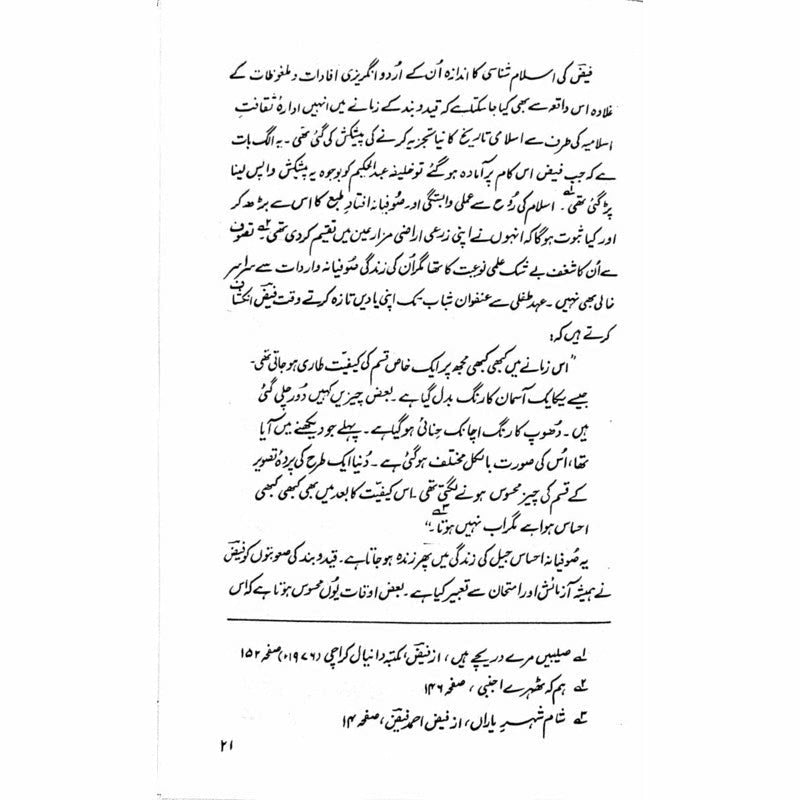 فیضؔ کی اسلام شناسی کا اندازہ اُن کے اُردو انگریزی افادات و ملفوظات کے
علاوہ اس واقعہ سے بھی کیا جا سکتا ہے کہ قید و بند کے زمانے میں انہیں ادارۂ ثقافتِ
اسلامیہ کی طرف سے اسلامی تاریخ کا نیا تجزیہ کرنے کی پیشکش کی گئی تھی۔ یہ الگ بات
ہے کہ جب فیض اس کام پر آمادہ ہو گئے تو خلیفہ عبدالحکیم کو بوجوہ یہ پیشکش واپس لینا
پڑ گئی تھی۱؎۔ اسلام کی رُوح سے عملی وابستگی اور صُوفیانہ افتادِ طبع کا اس سے بڑھ کر
اور کیا ثبوت ہوگا کہ انہوں نے اپنی زرعی اراضی مزارعین میں تقسیم کر دی تھی۲؎۔ تصوّف
سے اُن کا شغف بے شک علمی نوعیت کا تھا مگر اُن کی زندگی صُوفیانہ واردات سے سراسر
خالی بھی نہیں۔ عہدِ طفلی سے عنفوانِ شباب تک اپنی یادیں تازہ کرتے وقت فیضؔ انکشاف
کرتے ہیں کہ:
"اس زمانے میں کبھی کبھی مجھ پر ایک خاص قسم کی کیفیّت طاری ہو جاتی تھی۔
جیسے یکایک آسمان کا رنگ بدل گیا ہے۔ بعض چیزیں کہیں دُور چلی گئی
ہیں۔ دُھوپ کا رنگ اچانک حِنائی ہو گیا ہے۔ پہلے جو دیکھنے میں آیا
تھا، اُس کی صورت بالکل مختلف ہو گئی ہے۔ دُنیا ایک طرح کی پردۂ تصویر
کے قسم کی چیز محسوس ہونے لگتی تھی۔ اس کیفیّت کا بعد میں بھی کبھی کبھی
احساس ہوا ہے مگر اب نہیں ہوتا۳؎۔"
یہ صُوفیانہ احساس جیل کی زندگی میں پھر زندہ ہو جاتا ہے۔ قید و بند کی صعوبتوں کو فیضؔ
نے ہمیشہ آزمائش اور امتحان سے تعبیر کیا ہے۔ بعض اوقات یُوں محسوس ہوتا ہے کہ اس
۱؎ صلیبیں مرے دریچے میں، از فیضؔ، مکتبہ دانیال کراچی (۱۹۷۶ء) صفحہ ۱۵۲
۲؎ ہم کہ ٹھہرے اجنبی، صفحہ ۱۴۶
۳؎ شام شہرِ یاراں، از فیض احمد فیضؔ، صفحہ ۱۴
۲۱